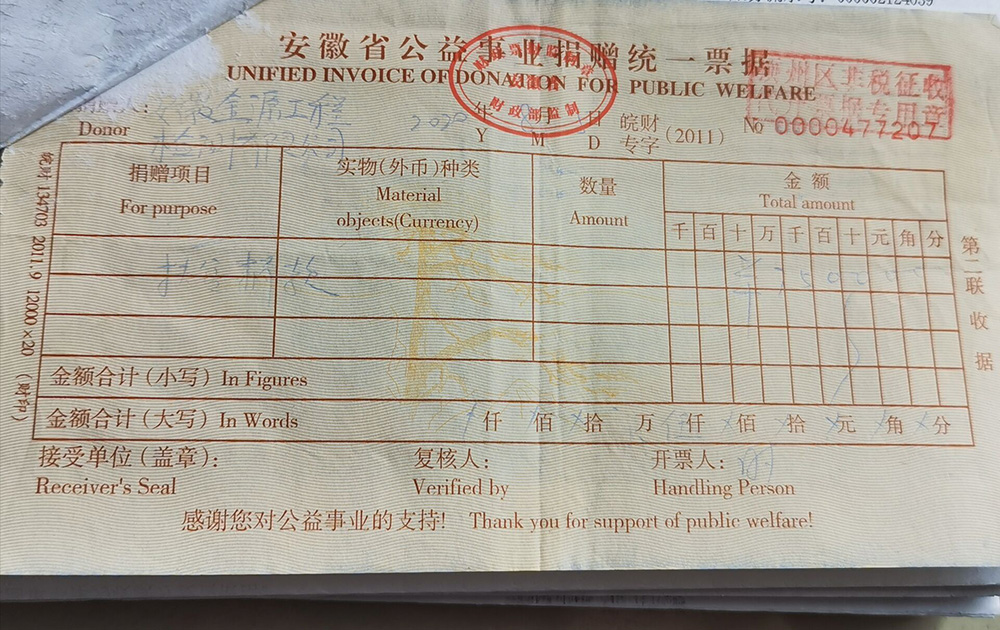 安徽省公益事业捐赠统一票据
UNIFIED INVOICE OF DONATION FOR PUBLIC WELFARE
财政部监制
州区非税征收
专用章
安徽金源工程
检测有限公司
Donor
2020 年 月 日
Y M D
皖财
专字 (2011)
No 0000477207
捐赠项目
For purpose
实物(外币)种类
Material
objects(Currency)
数量
Amount
金额
Total amount
千 百 十 万 千 百 十 元 角 分
扶贫捐款
金额合计(小写) In Figures
金额合计(大写) In Words 仟 佰 拾 万 仟 佰 拾 元 角 分
接受单位(盖章):
Receiver's Seal
复核人:
Verified by
开票人:
Handling Person
感谢您对公益事业的支持! Thank you for support of public welfare!
皖财 134703 2011.9 12000×20 (财印)
第二联 收据